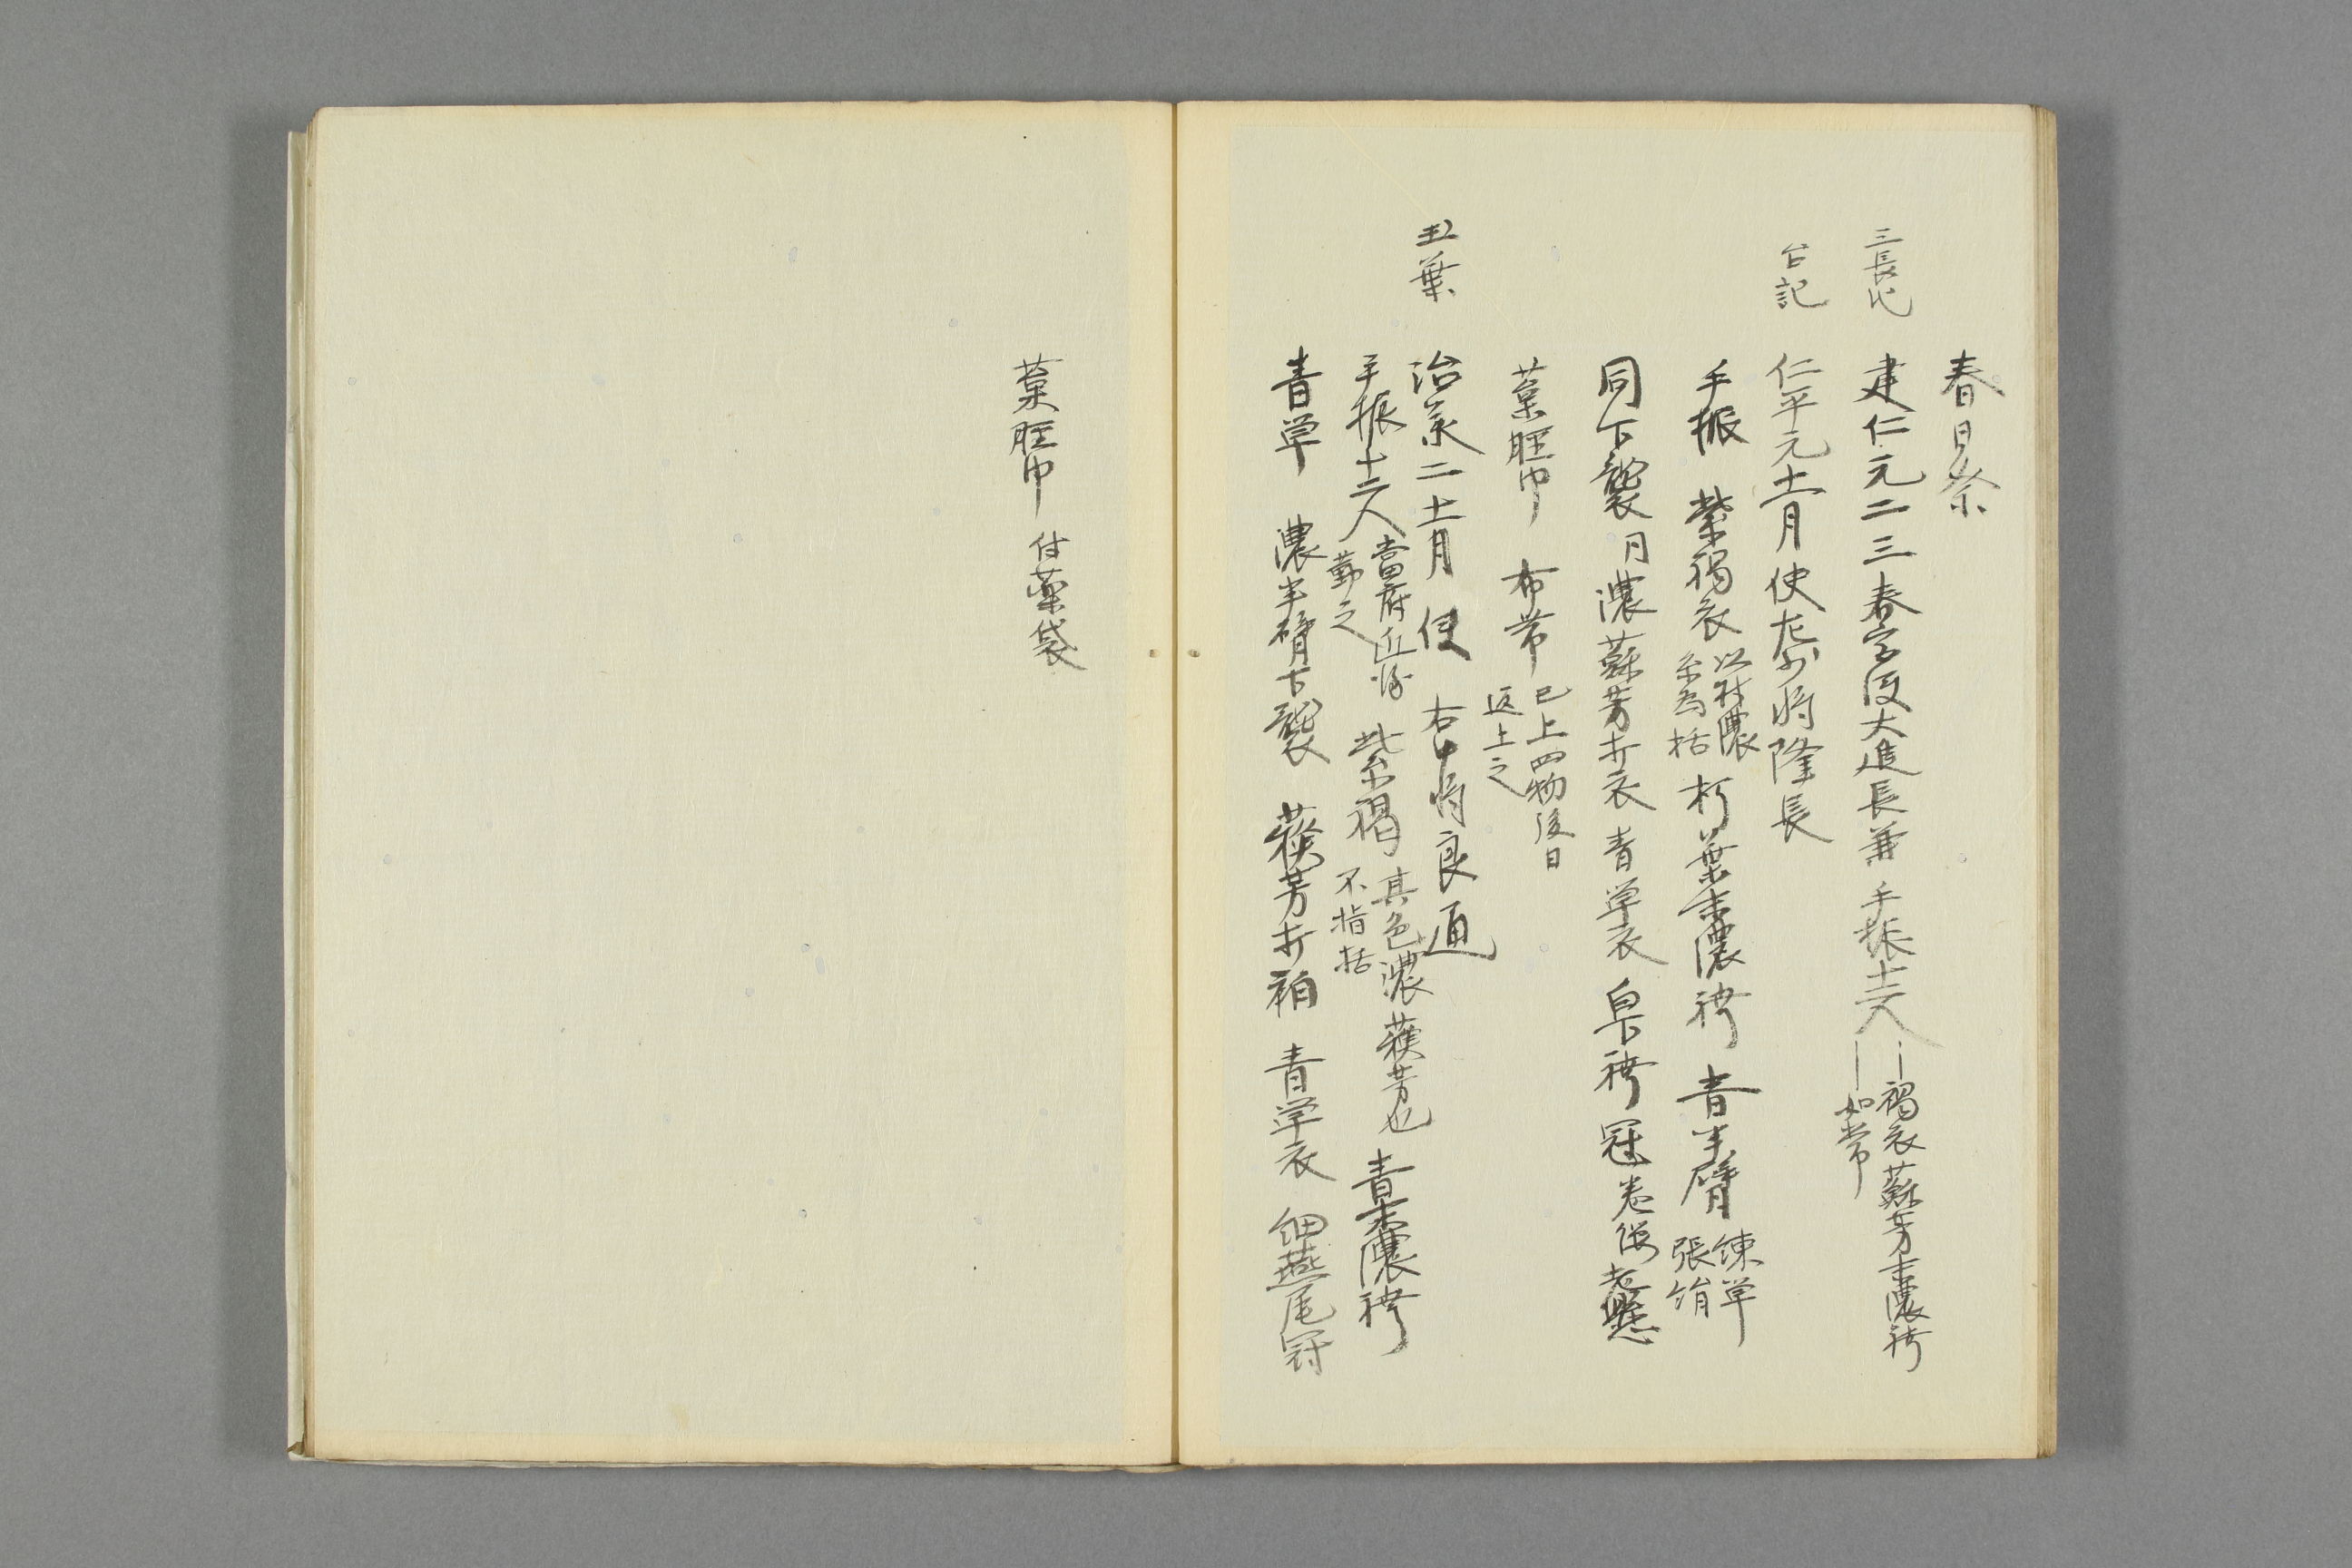 春日祭
三長記
建仁元二三春宮使大進長兼 手振十二人 褐衣蘇芳末濃袴
如常
台記
仁平元十一月使左少将隆長
手振 紫褐衣 以村濃
糸為括 朽葉末濃袴 青半臂 練単
張絹
同下襲 同濃蘇芳打衣 青単衣 皂袴 冠巻纓老懸
葉脛巾 布帯 已上四物後日
返上之
玉葉
治承二十一月 使 右中将良通
手振十二人 當府近
勤之 紫褐 其色濃蘇芳也
不指括 青末濃袴
青単 濃半臂下襲 蘇芳打衵 青単衣 細燕尾冠
葉脛巾 付薬袋